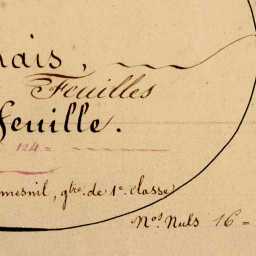 nais,
Feuilles
feuille.
124 =
mesnil, gtre. de 1e. classe
Nos. Nuls 16 =